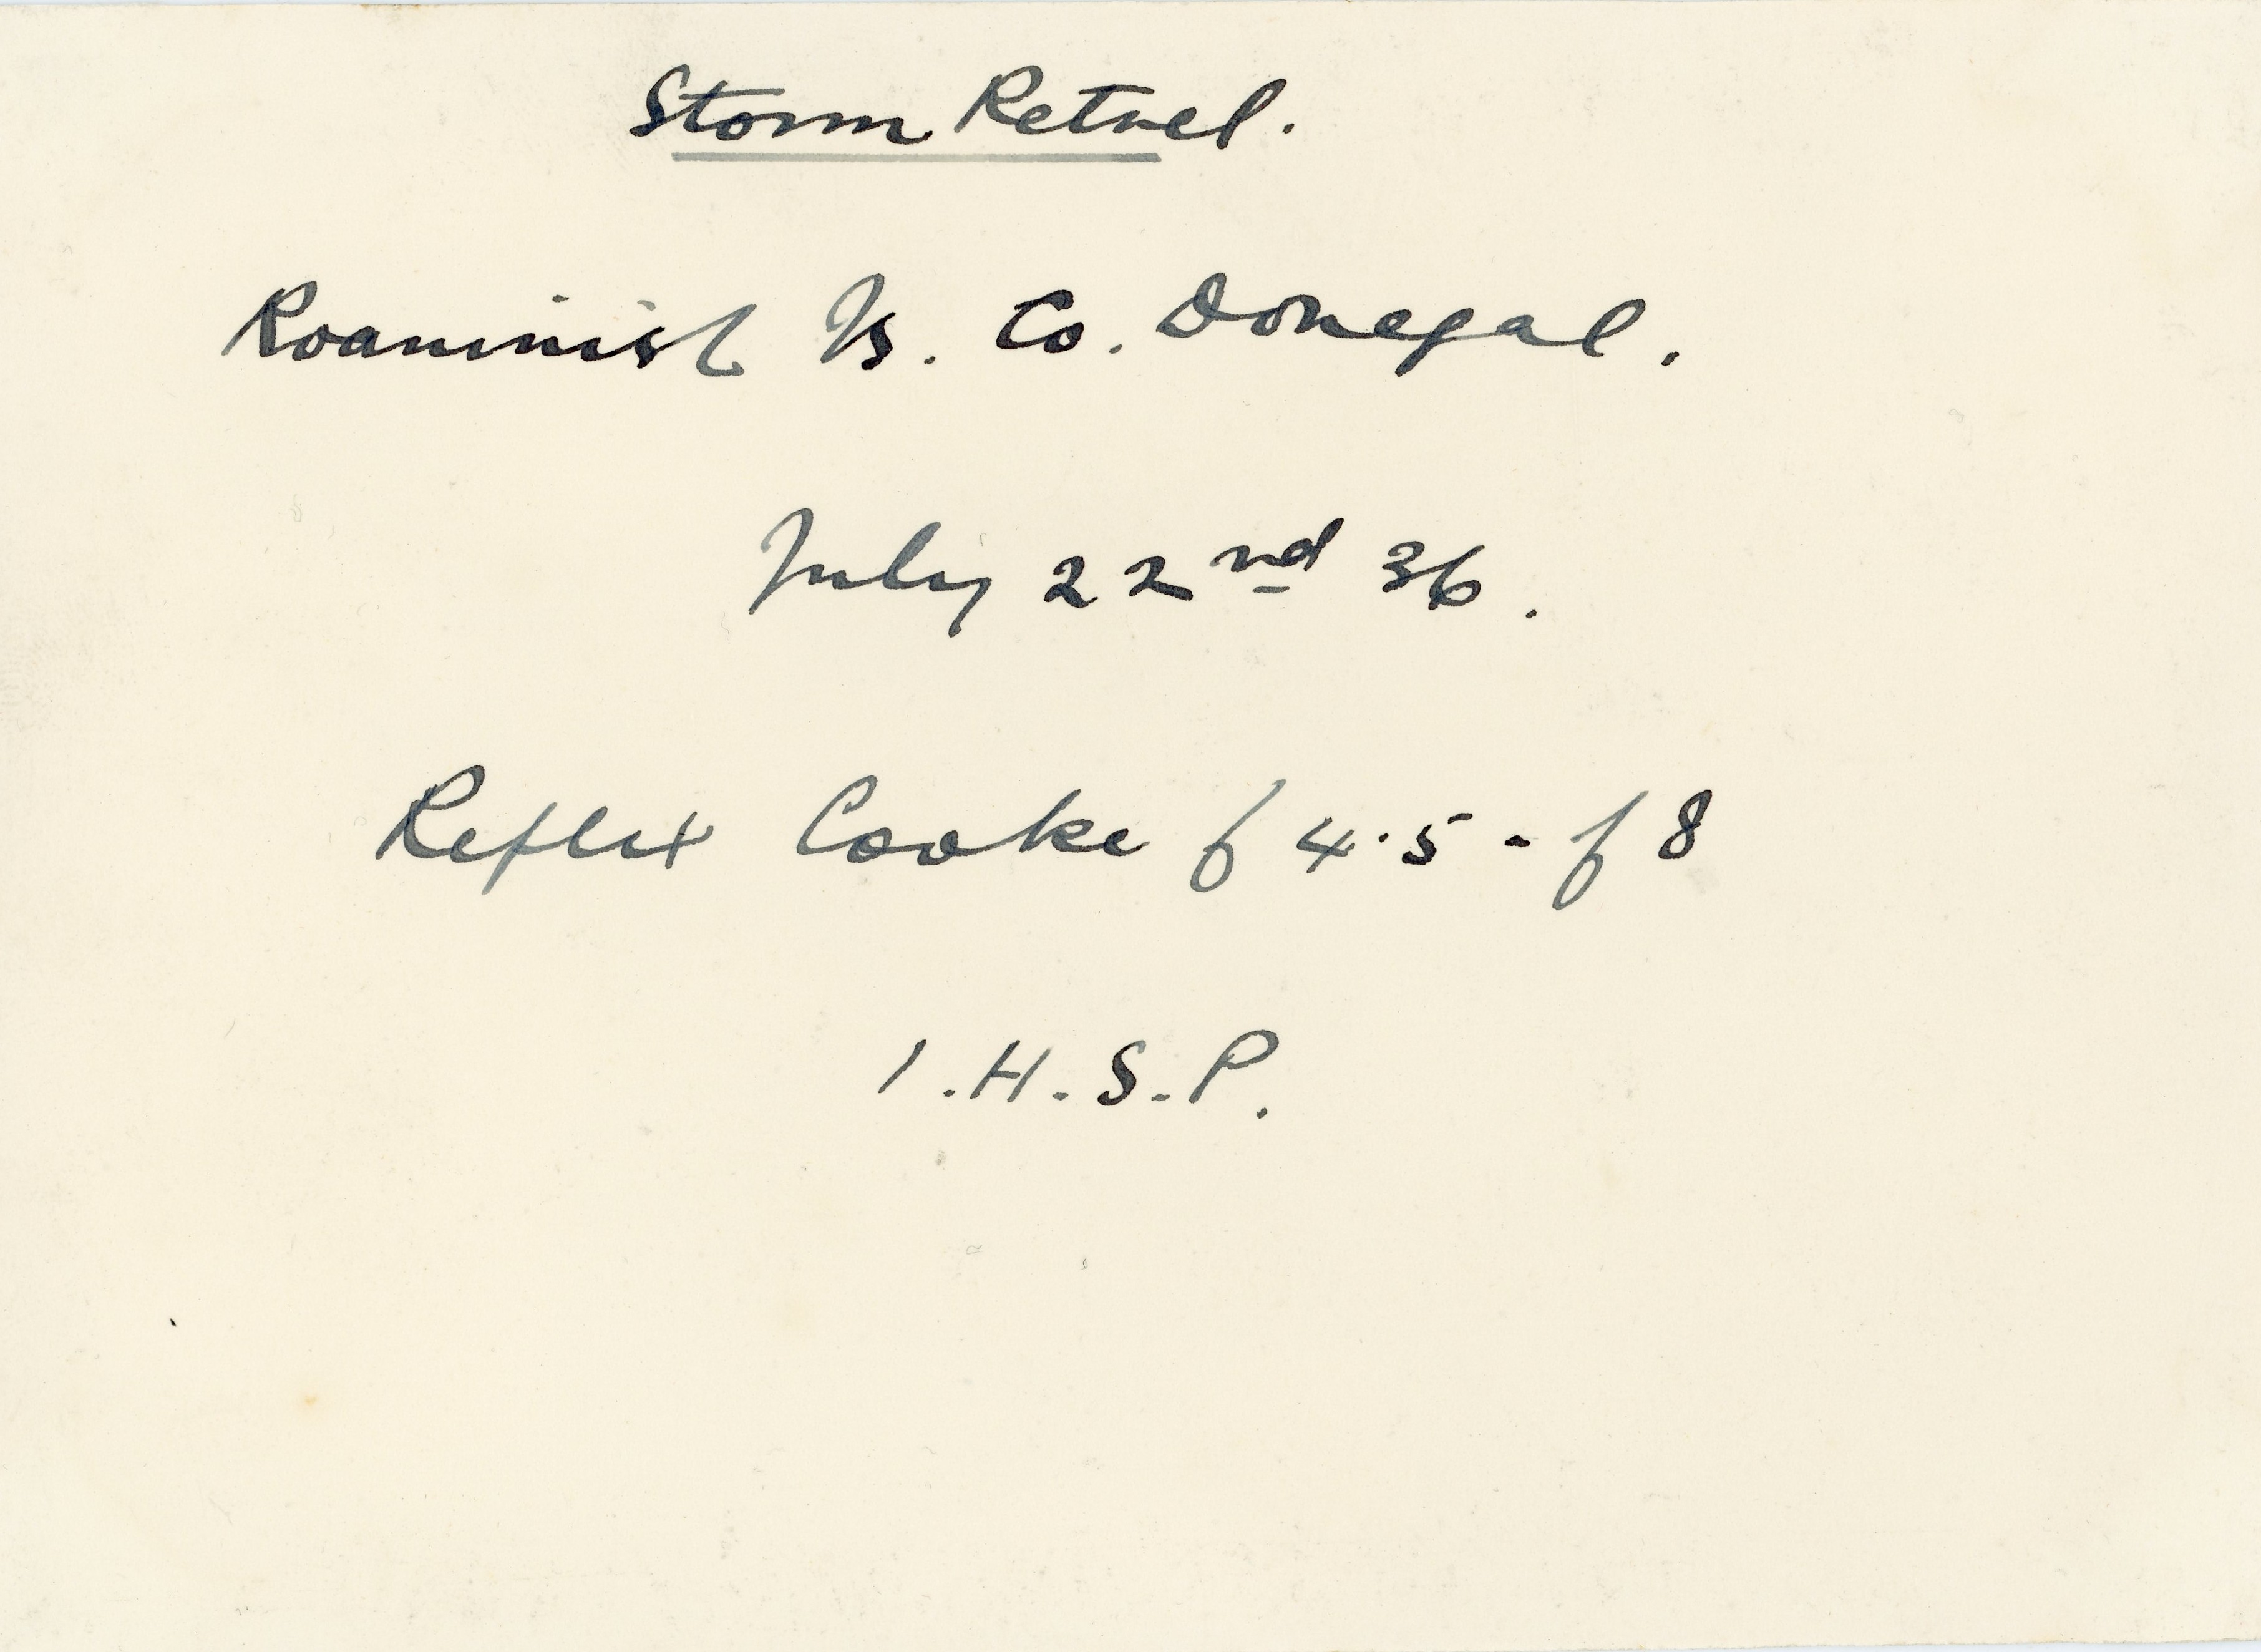 Storm Petrel.
Roaninish Is. Co. Donegal.
July 22nd 36.
Reflex Cooke f 4.5 - f 8
I.H.S.P.